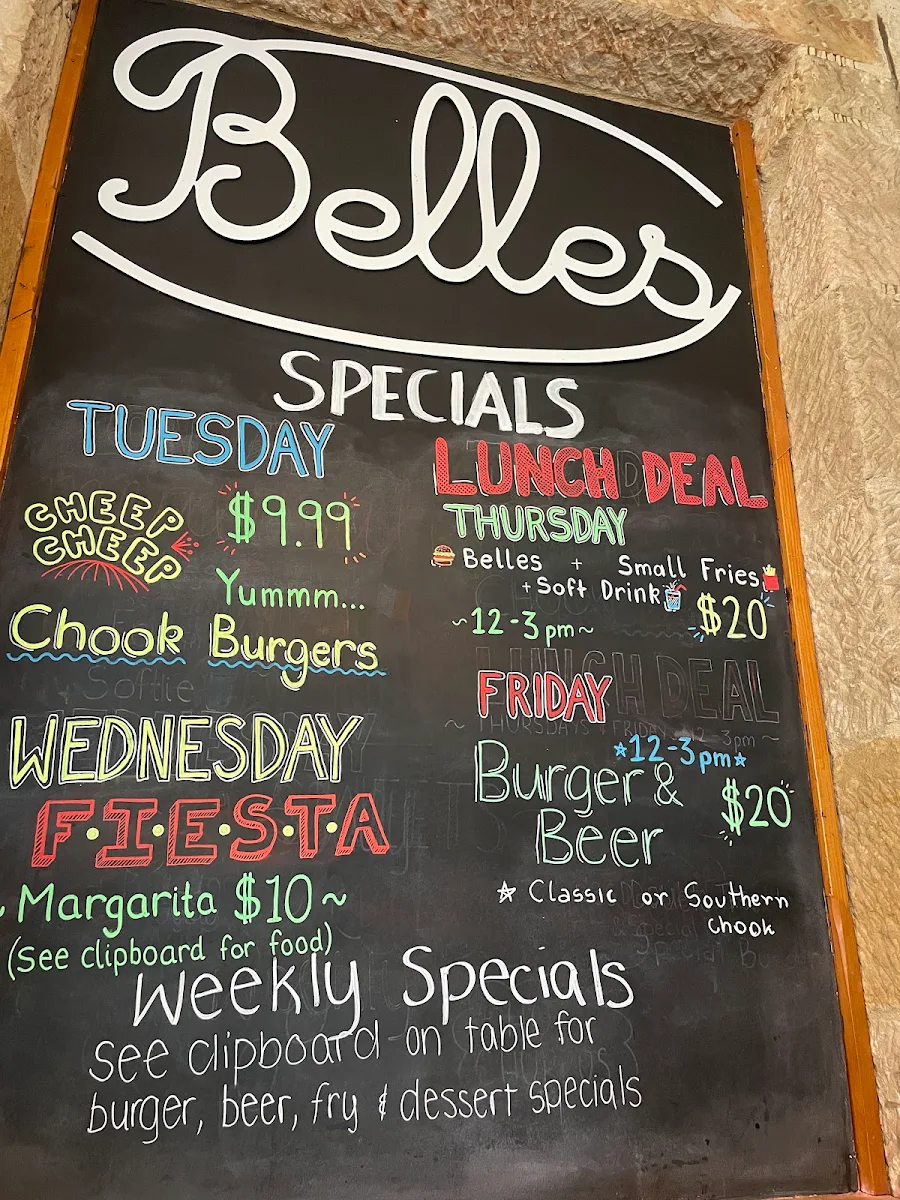 Belles
SPECIALS
TUESDAY
CHEEP
CHEEP
$9.99
Yummm...
Chook Burgers
Softie
WEDNESDAY
F·I·E·S·T·A
~Margarita $10~
(See clipboard for food)
LUNCH DEAL
THURSDAY
Belles + Small Fries
+ Soft Drink
$20
~12-3pm~
LUNCH DEAL
~ THURSDAYS + FRIDAY 12-3pm ~
FRIDAY
☆12-3pm☆
Burger &
Beer
$20
☆ Classic or Southern
Chook
Weekly Specials
see clipboard on table for
burger, beer, fry & dessert specials